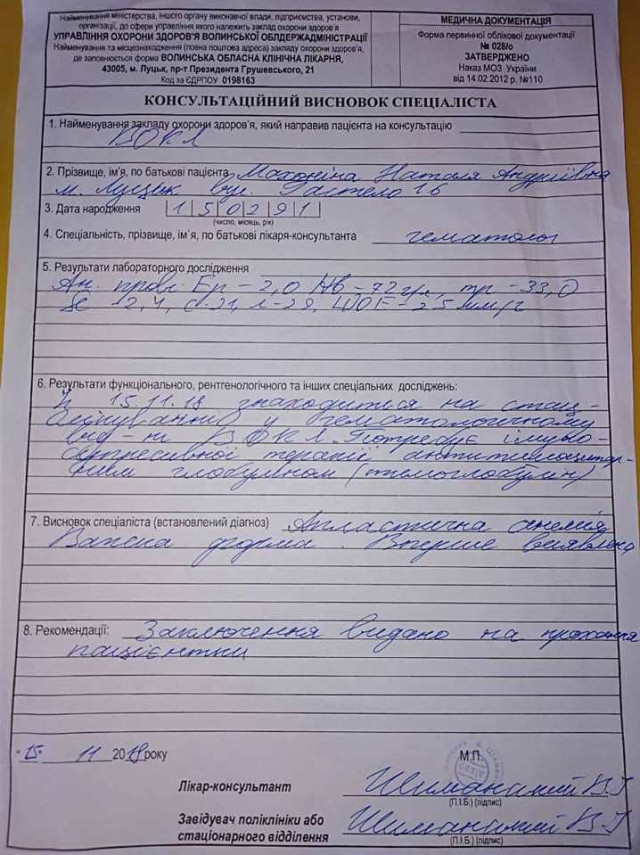 Найменування міністерства, іншого органу виконавчої влади, підприємства, установи,
організації, до сфери управління якого належить заклад охорони здоров'я
УПРАВЛІННЯ ОХОРОНИ ЗДОРОВ'Я ВОЛИНСЬКОЇ ОБЛДЕРЖАДМІНІСТРАЦІЇ
Найменування та місцезнаходження (повна поштова адреса) закладу охорони здоров'я,
де заповнюється форма ВОЛИНСЬКА ОБЛАСНА КЛІНІЧНА ЛІКАРНЯ,
43005, м. Луцьк, пр-т Президента Грушевського, 21
Код за ЄДРПОУ 0198163
МЕДИЧНА ДОКУМЕНТАЦІЯ
Форма первинної облікової документації
№ 028/о
ЗАТВЕРДЖЕНО
Наказ МОЗ України
від 14.02.2012 р. №110
КОНСУЛЬТАЦІЙНИЙ ВИСНОВОК СПЕЦІАЛІСТА
1. Найменування закладу охорони здоров'я, який направив пацієнта на консультацію
ВОКЛ
2. Прізвище, ім'я, по батькові пацієнта Махоніна Наталя Андріївна
м. Луцьк вул. Гастело 16
3. Дата народження 1 5 0 2 9 1
(число, місяць, рік)
4. Спеціальність, прізвище, ім'я, по батькові лікаря-консультанта гематолог
5. Результати лабораторного дослідження
Ан. крові Ер – 2,0 Нв – 72 г/л, тр – 33,0
2,4, с-21, л-29, ШОЕ – 25 мм/г
6. Результати функціонального, рентгенологічного та інших спеціальних досліджень:
15.11.18 знаходиться на стац-
лікуванні у гематологічному
від-ні ВОКЛ. Потребує імуно-
супресивної терапії антитимоцитар-
ним глобуліном (тимоглобулін)
7. Висновок спеціаліста (встановлений діагноз) Апластична анемія
Важка форма. Вперше виявлена
8. Рекомендації: Заключення видано на прохання
пацієнтки
"15" 11 2018 року
М.П.
Лікар-консультант Шиманський
(П.І.Б.) (підпис)
Завідувач поліклініки або
стаціонарного відділення Шиманський
(П.І.Б.) (підпис)